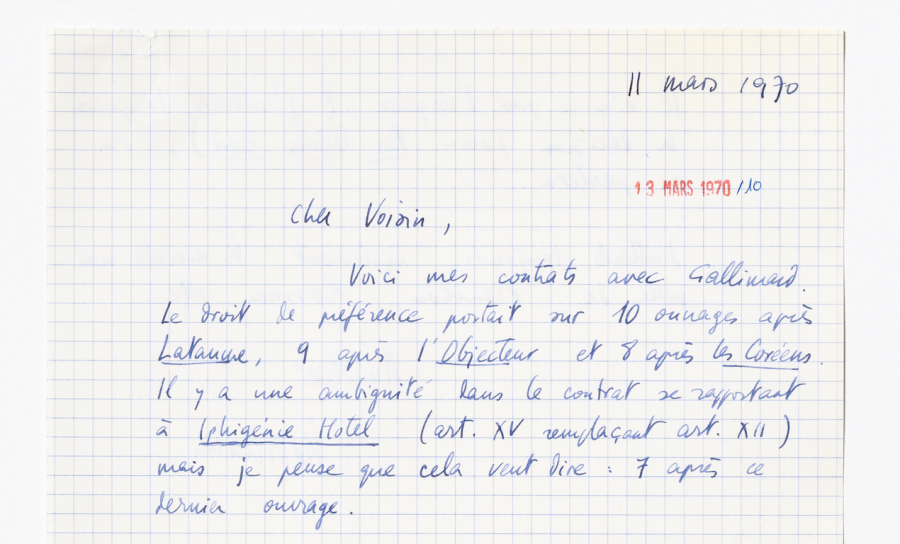 11 mars 1970
13 MARS 1970 /10
Cher Voisin,
Voici mes contrats avec Gallimard.
Le droit de préférence portait sur 10 ouvrages après
Lataume, 9 après l'Objecteur et 8 après les Coréens.
Il y a une ambiguité dans le contrat se rapportant
à Iphigénie Hotel (art. XV remplaçant art. XII)
mais je pense que cela veut dire : 7 après ce
dernier ouvrage.